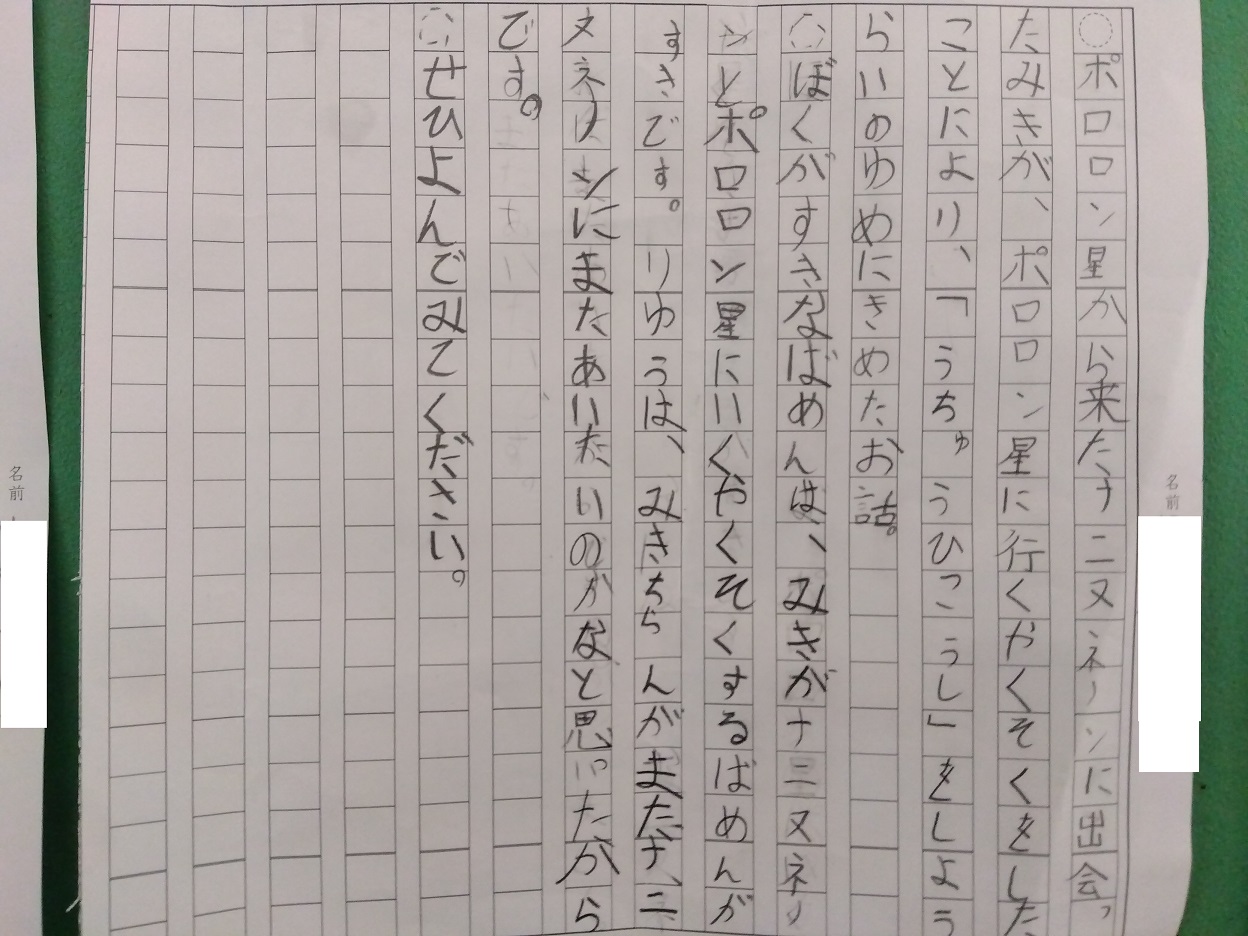 ポロロン星から来たナニヌネノンに出会っ
たみきが、ポロロン星に行くやくそくをした
ことにより、「うちゅうひこうし」をしょう
らいのゆめにきめたお話。
ぼくがすきなばめんは、みきがナニヌネノ
ンとポロロン星にいくやくそくするばめんが
すきです。りゆうは、みきちちんがまたナニ
ヌネノンにまたあいたいのかなと思ったから
です。
せひよんでみてください。
名前
名前